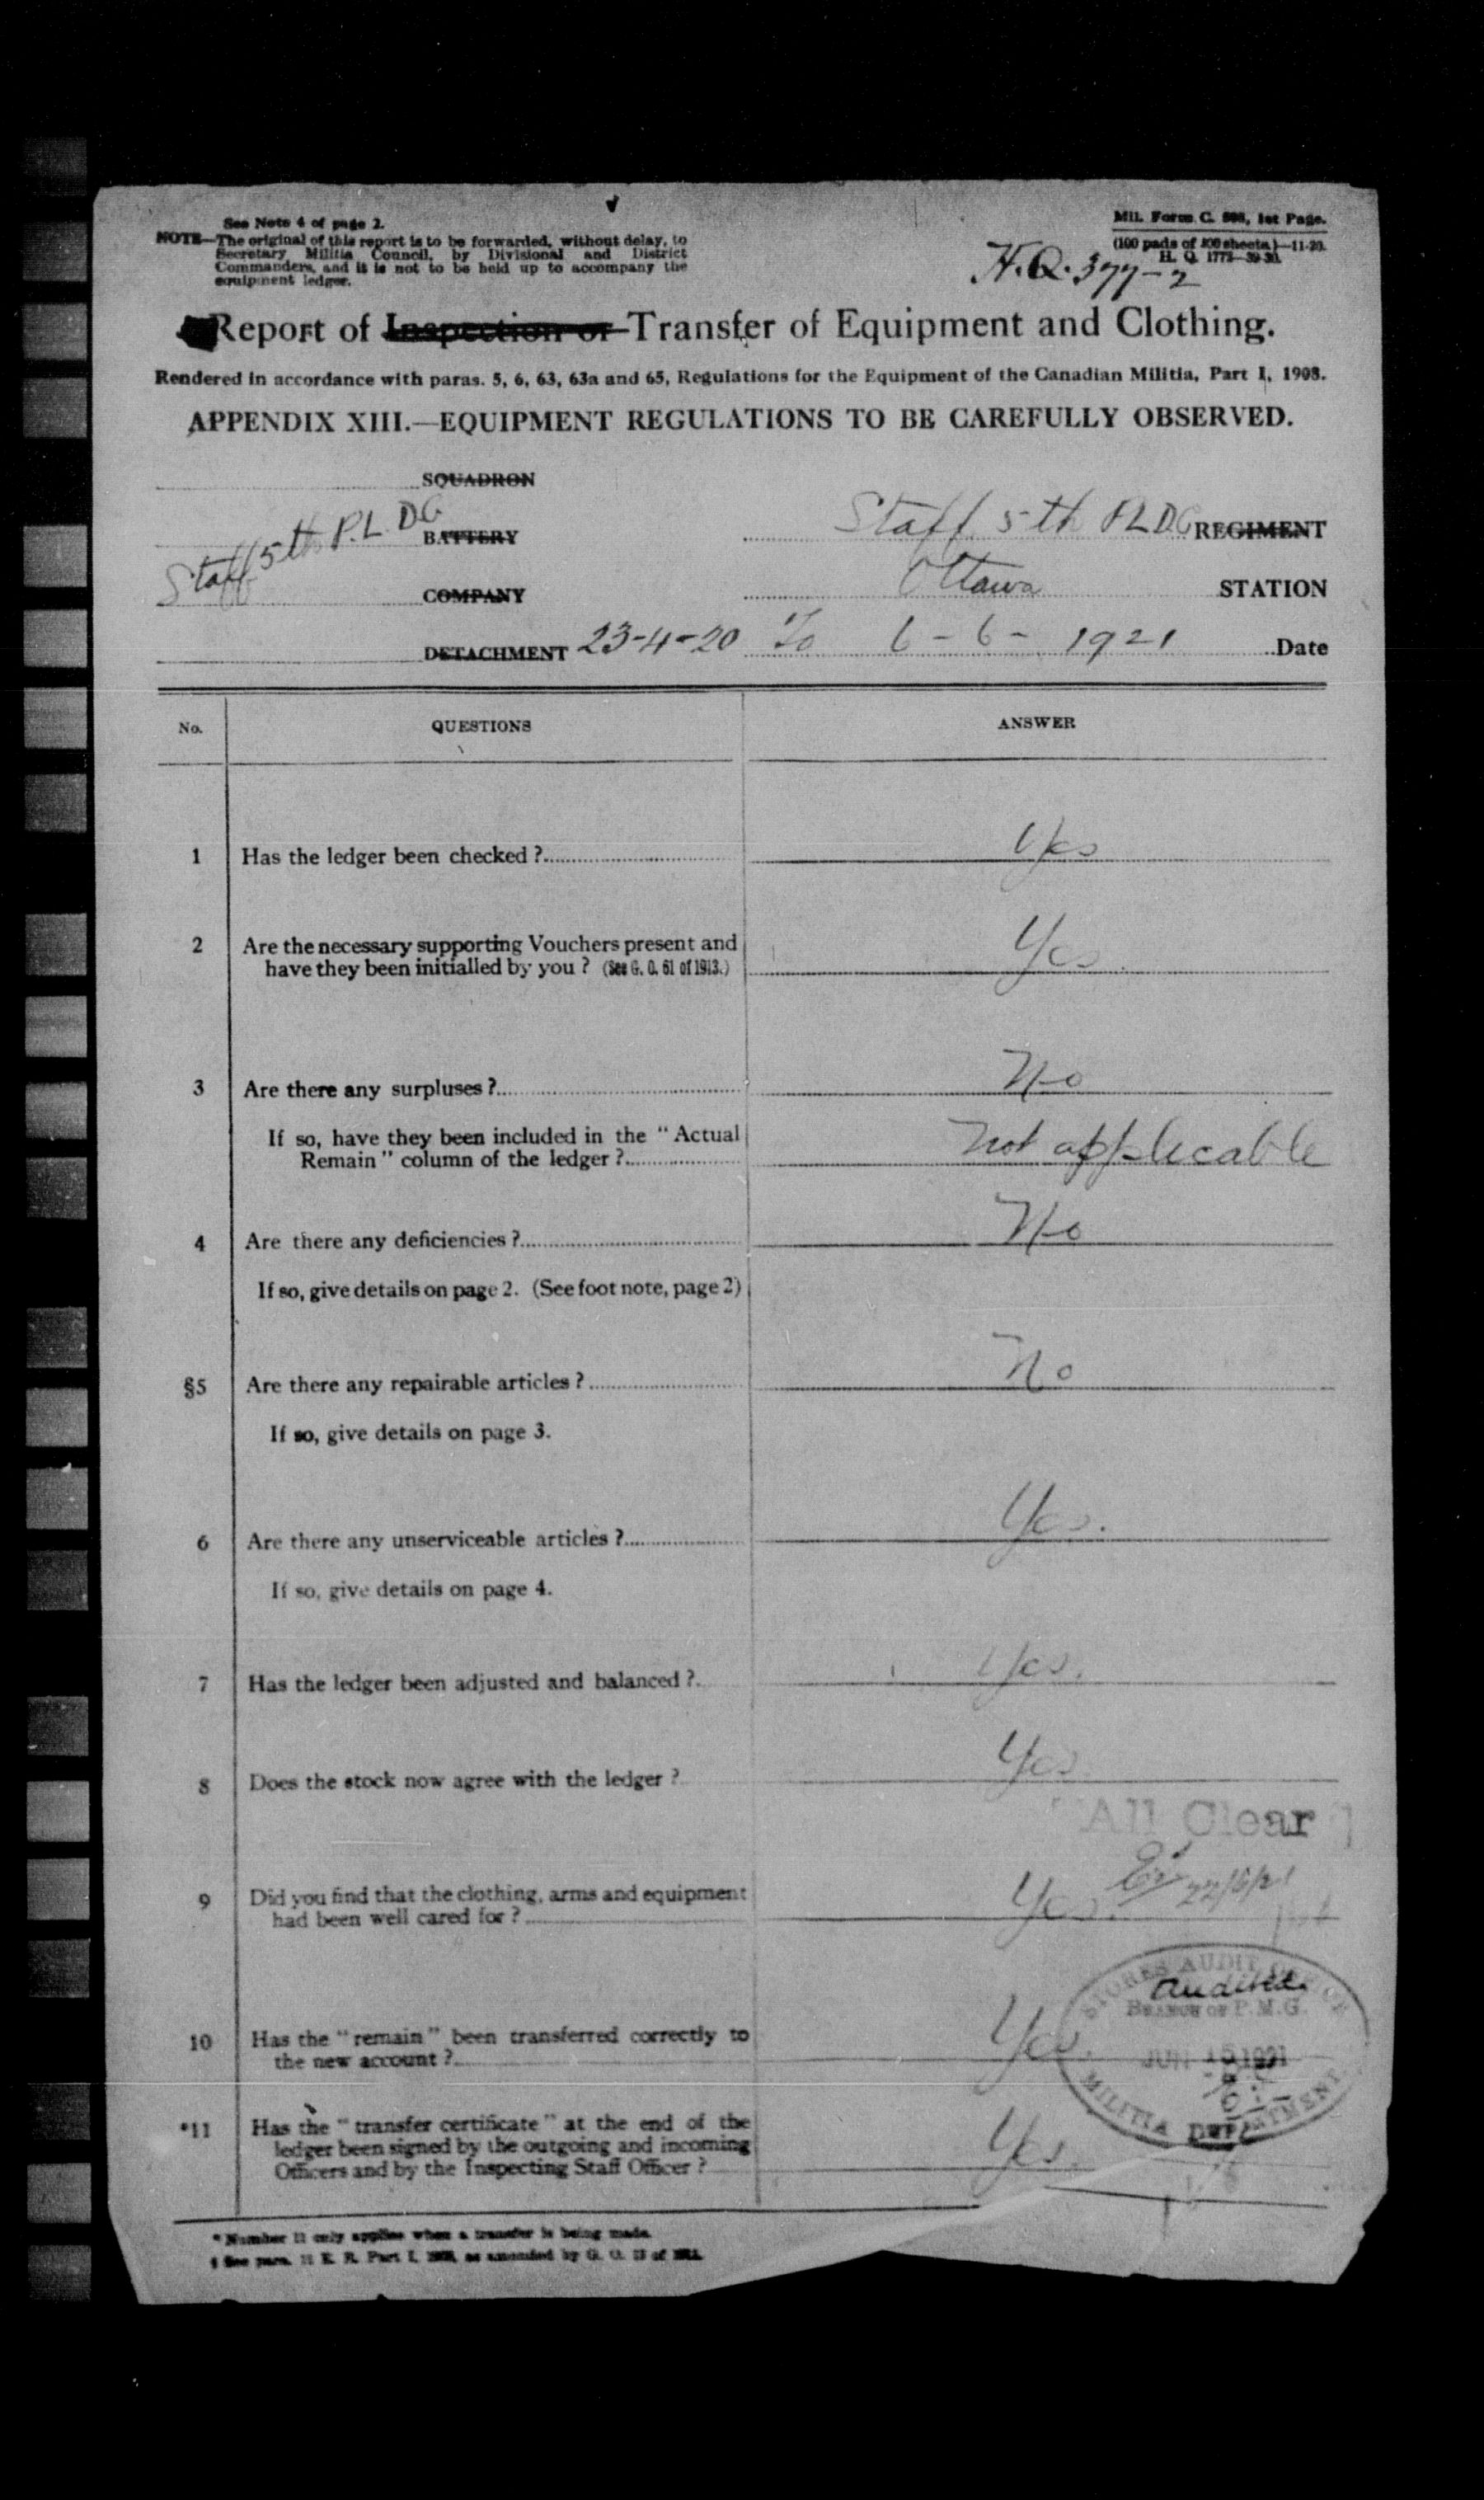 See Note 4 of page 2.
NOTE—The original of this report is to be forwarded, without delay, to
Secretary Militia Council, by Divisional and District
Commanders, and it is not to be held up to accompany the
equipment ledger.
Mil. Form C. 1st Page.
(100 pads of 100 sheets)—11-20.
H. Q. 1772—39-
H.Q. 377-2
Report of Inspection or Transfer of Equipment and Clothing.
Rendered in accordance with paras. 5, 6, 63, 63a and 65, Regulations for the Equipment of the Canadian Militia, Part 1, 1908.
APPENDIX XIII.—EQUIPMENT REGULATIONS TO BE CAREFULLY OBSERVED.
SQUADRON
Staff 5th P.L.D.G BATTERY
Staff 5th P.L.D.G REGIMENT
COMPANY
Ottawa STATION
DETACHMENT 23-4-20 To 6-6-1921 Date
No. QUESTIONS ANSWER
1 Has the ledger been checked? Yes
2 Are the necessary supporting Vouchers present and
have they been initialled by you? (See G. O. 61 of 1913.) Yes.
3 Are there any surpluses? No
If so, have they been included in the "Actual
Remain" column of the ledger? not applicable
4 Are there any deficiencies? No
If so, give details on page 2. (See foot note, page 2)
§5 Are there any repairable articles? No
If so, give details on page 3.
6 Are there any unserviceable articles? Yes.
If so, give details on page 4.
7 Has the ledger been adjusted and balanced? Yes.
8 Does the stock now agree with the ledger? Yes
"All Clear"
22/6/21
9 Did you find that the clothing, arms and equipment
had been well cared for? Yes.
STORES AUDIT OFFICE
Audited
BRANCH OF P.M.G.
JUN 15 1921
MILITIA DEPARTMENT
10 Has the "remain" been transferred correctly to
the new account? Yes.
*11 Has the "transfer certificate" at the end of the
ledger been signed by the outgoing and incoming
Officers and by the Inspecting Staff Officer? Yes.
* Number 11 only applies when a transfer is being made.
§ See para. 11 E. R. Part I, 1908, as amended by G. O. of